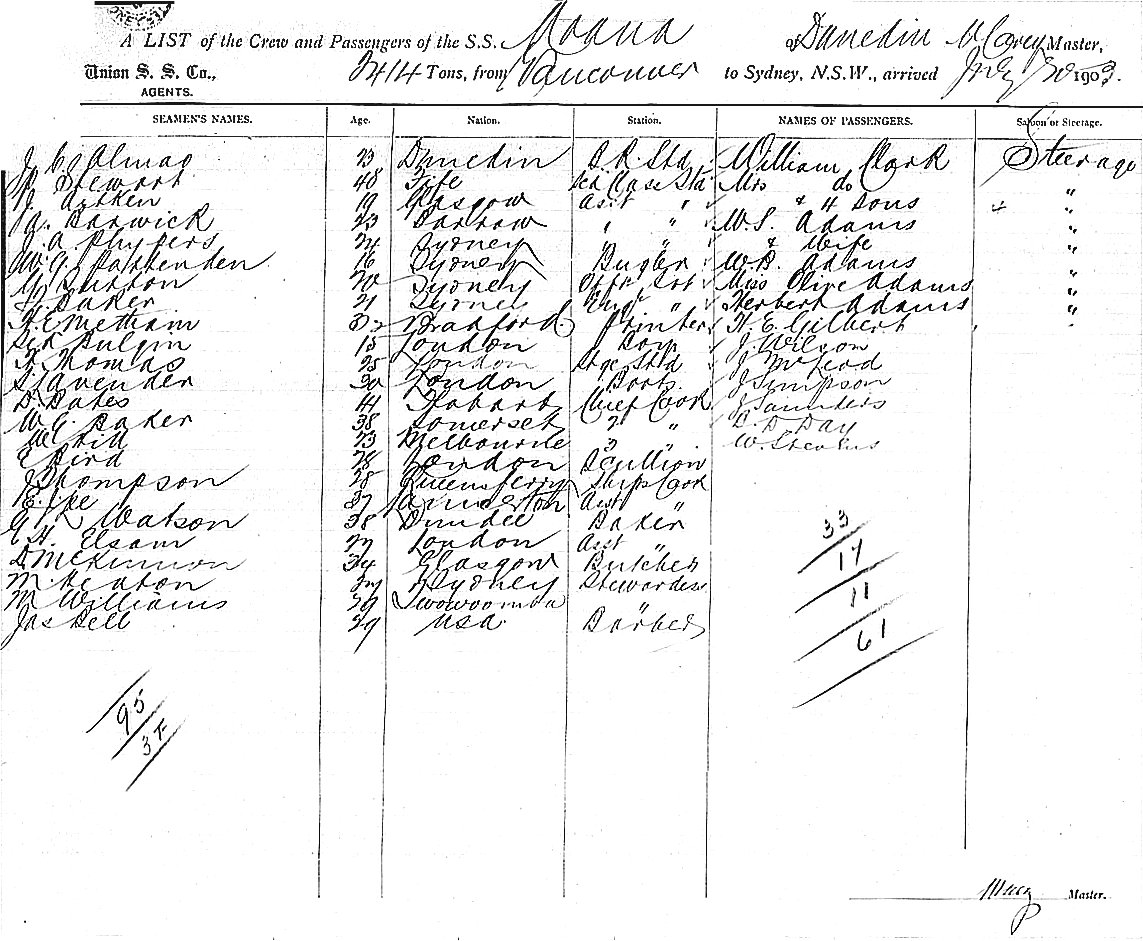 A LIST of the Crew and Passengers of the S.S. Moana of Dunedin M Carey Master,
Union S. S. Co., 2414 Tons, from Vancouver to Sydney, N.S.W., arrived July 30 1903.
AGENTS.
SEAMEN'S NAMES. Age. Nation. Station. NAMES OF PASSENGERS. Saloon or Steerage.
23 Dunedin B. R. Std William Clark Steerage
Stewart 48 Fife Std Mrs do "
J. Aitken 19 Glasgow Asst " & 4 Sons "
Barwick 23 Barrow " " W. S. Adams "
J. A Phypers 24 Sydney " " & Wife "
W. G. 16 Sydney Bugler W. B. Adams "
20 Sydney Miss Olive Adams "
Baker 21 Sydney " Herbert Adams "
Metham Bradford Printer H. E. Gilbert
Bulgin 15 London Boy J. Wilson
Thomas 25 London Stge Std J McLeod
Lavender 30 London Boots. J Simpson
D. Bates 41 Hobart Chief Cook J Saunders
W. G. Baker 38 Somerset 2 " D. D Day
23 Melbourne 3 " W. Stevens
E Bird 28 London Scullion
J Thompson 28 Queensferry Ships Cook
37 Asst "
Watson 38 Dundee Baker
Elsam 27 London Asst "
D. McKinnon 34 Glasgow Butcher
M. Heaton Sydney Stewardess
M Williams 29 "
Jas Bell 29 USA. Barber
33
17
11
61
95
Master.